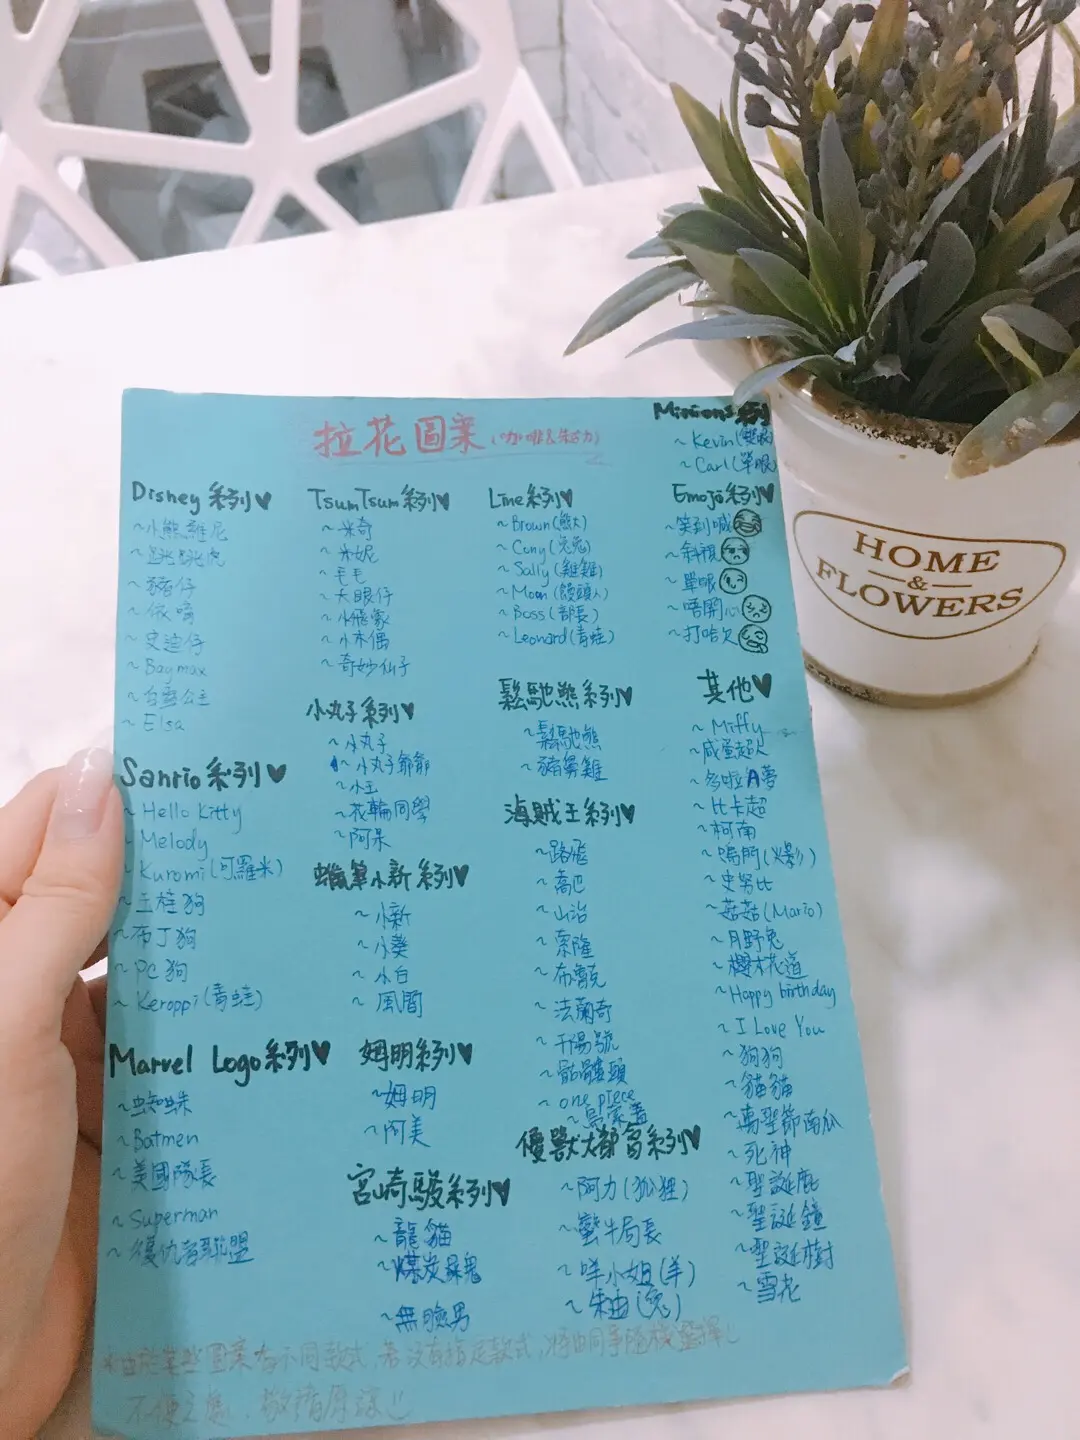 拉花圖案(咖啡&朱古力)
Minions系列
~Kevin(雙眼)
~Carl(單眼)
Disney 系列♥
~小熊維尼
~跳跳虎
~豬仔
~依唷
~史迪仔
~Baymax
~白雪公主
~Elsa
Sanrio系列♥
~Hello Kitty
~Melody
~Kuromi(可羅米)
~玉桂狗
~布丁狗
~PC狗
~Keroppi(青蛙)
Marvel Logo系列♥
~蜘蛛
~Batmen
~美國隊長
~Superman
~復仇者聯盟
TsumTsum系列♥
~米奇
~米妮
~毛毛
~大眼仔
~小飛象
~小木偶
~奇妙仙子
小丸子系列♥
~小丸子
~小丸子爺爺
~小玉
~花輪同學
~阿呆
蠟筆小新系列♥
~小新
~小葵
~小白
~風間
姆明系列♥
~姆明
~阿美
宮崎駿系列♥
~龍貓
~煤炭屎鬼
~無臉男
Line系列♥
~Brown(熊大)
~Cony(兔兔)
~Sally(雞雞)
~Moon(饅頭人)
~Boss(部長)
~Leonard(青蛙)
鬆馳熊系列♥
~鬆馳熊
~豬鼻雞
海賊王系列♥
~路飛
~喬巴
~山治
~索隆
~布魯克
~法蘭奇
~千陽號
~骷髏頭
~one piece
~烏索蓋
優獸大都會系列♥
~阿力(狐狸)
~蠻牛局長
~咩小姐(羊)
~朱迪(兔)
Emoji系列♥
~笑到喊
~斜視
~單眼
~唔開心
~打哈欠
其他♥
~Miffy
~咸蛋超人
~多啦A夢
~比卡超
~柯南
~鳴門(火影)
~史努比
~菇菇(Mario)
~月野兔
~櫻木花道
~Happy birthday
~I Love You
~狗狗
~貓貓
~萬聖節南瓜
~死神
~聖誕鹿
~聖誕鐘
~聖誕樹
~雪花
*由於某些圖案有不同款式,若沒有指定款式,將由同事隨機選擇
不便之處,敬請原諒
HOME
&
FLOWERS